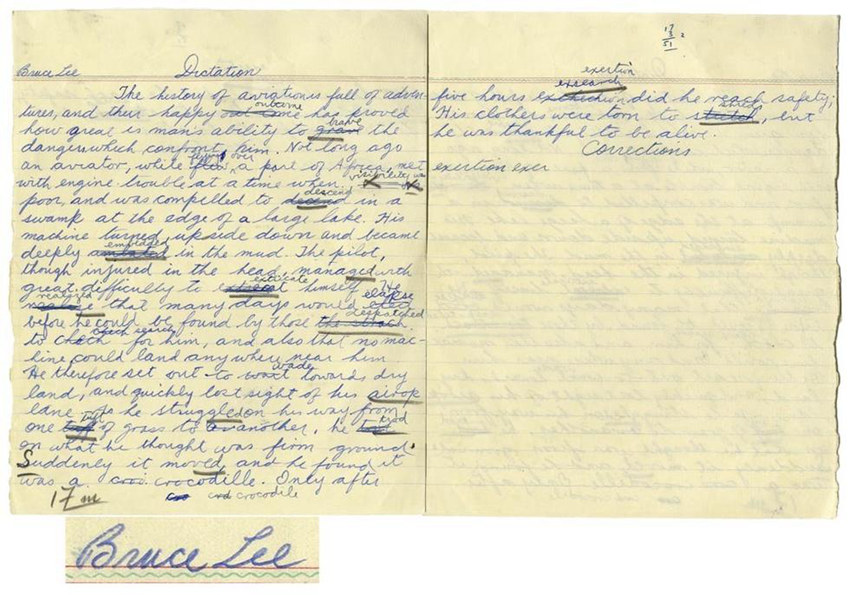 Bruce Lee Dictation
The history of aviation is full of adven-
tures, and their happy outcome has proved
how great is man's ability to brave the
danger which confront him. Not long ago
an aviator, while flying over a part of Africa met
with engine trouble at a time when visibility was
poor, and was compelled to descend in a
swamp at the edge of a large lake. His
machine turned upside down and became
deeply embedded in the mud. The pilot,
though injured in the head, managed with
great difficulty to extricate himself. He
realized that many days would elapse
before he could be found by those despatched
to search for him, and also that no mac-
hine could land anywhere near him
He therefore set out to wade towards dry
land, and quickly lost sight of his airop
lane. As he struggled on his way from
one tuft of grass to another, he trod
on what he thought was firm ground.
Suddenly it moved, and he found it
was a crocodille. Only after
17 m crocodile
17
51
exertion
five hours did he reach safety;
His clothers were torn to shred, but
he was thankful to be alive.
Corrections
exertion exer
Bruce Lee